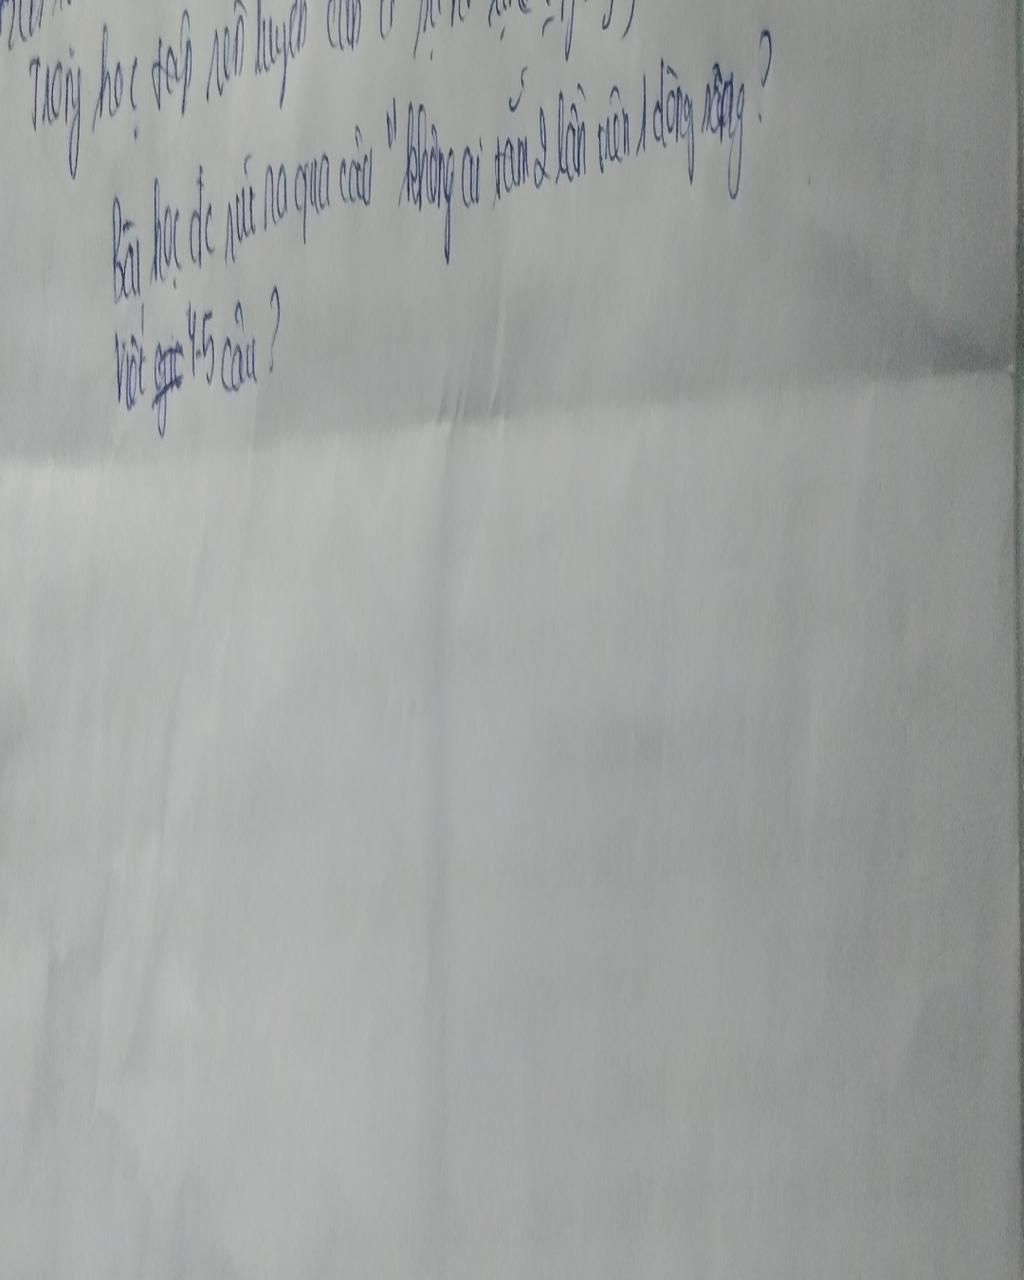 Trong học tập rèn luyện cần
Bài học đc rút ra qua câu "không ai tắm 2 lần trên 1 dòng sông?
Viết 4-5 câu?